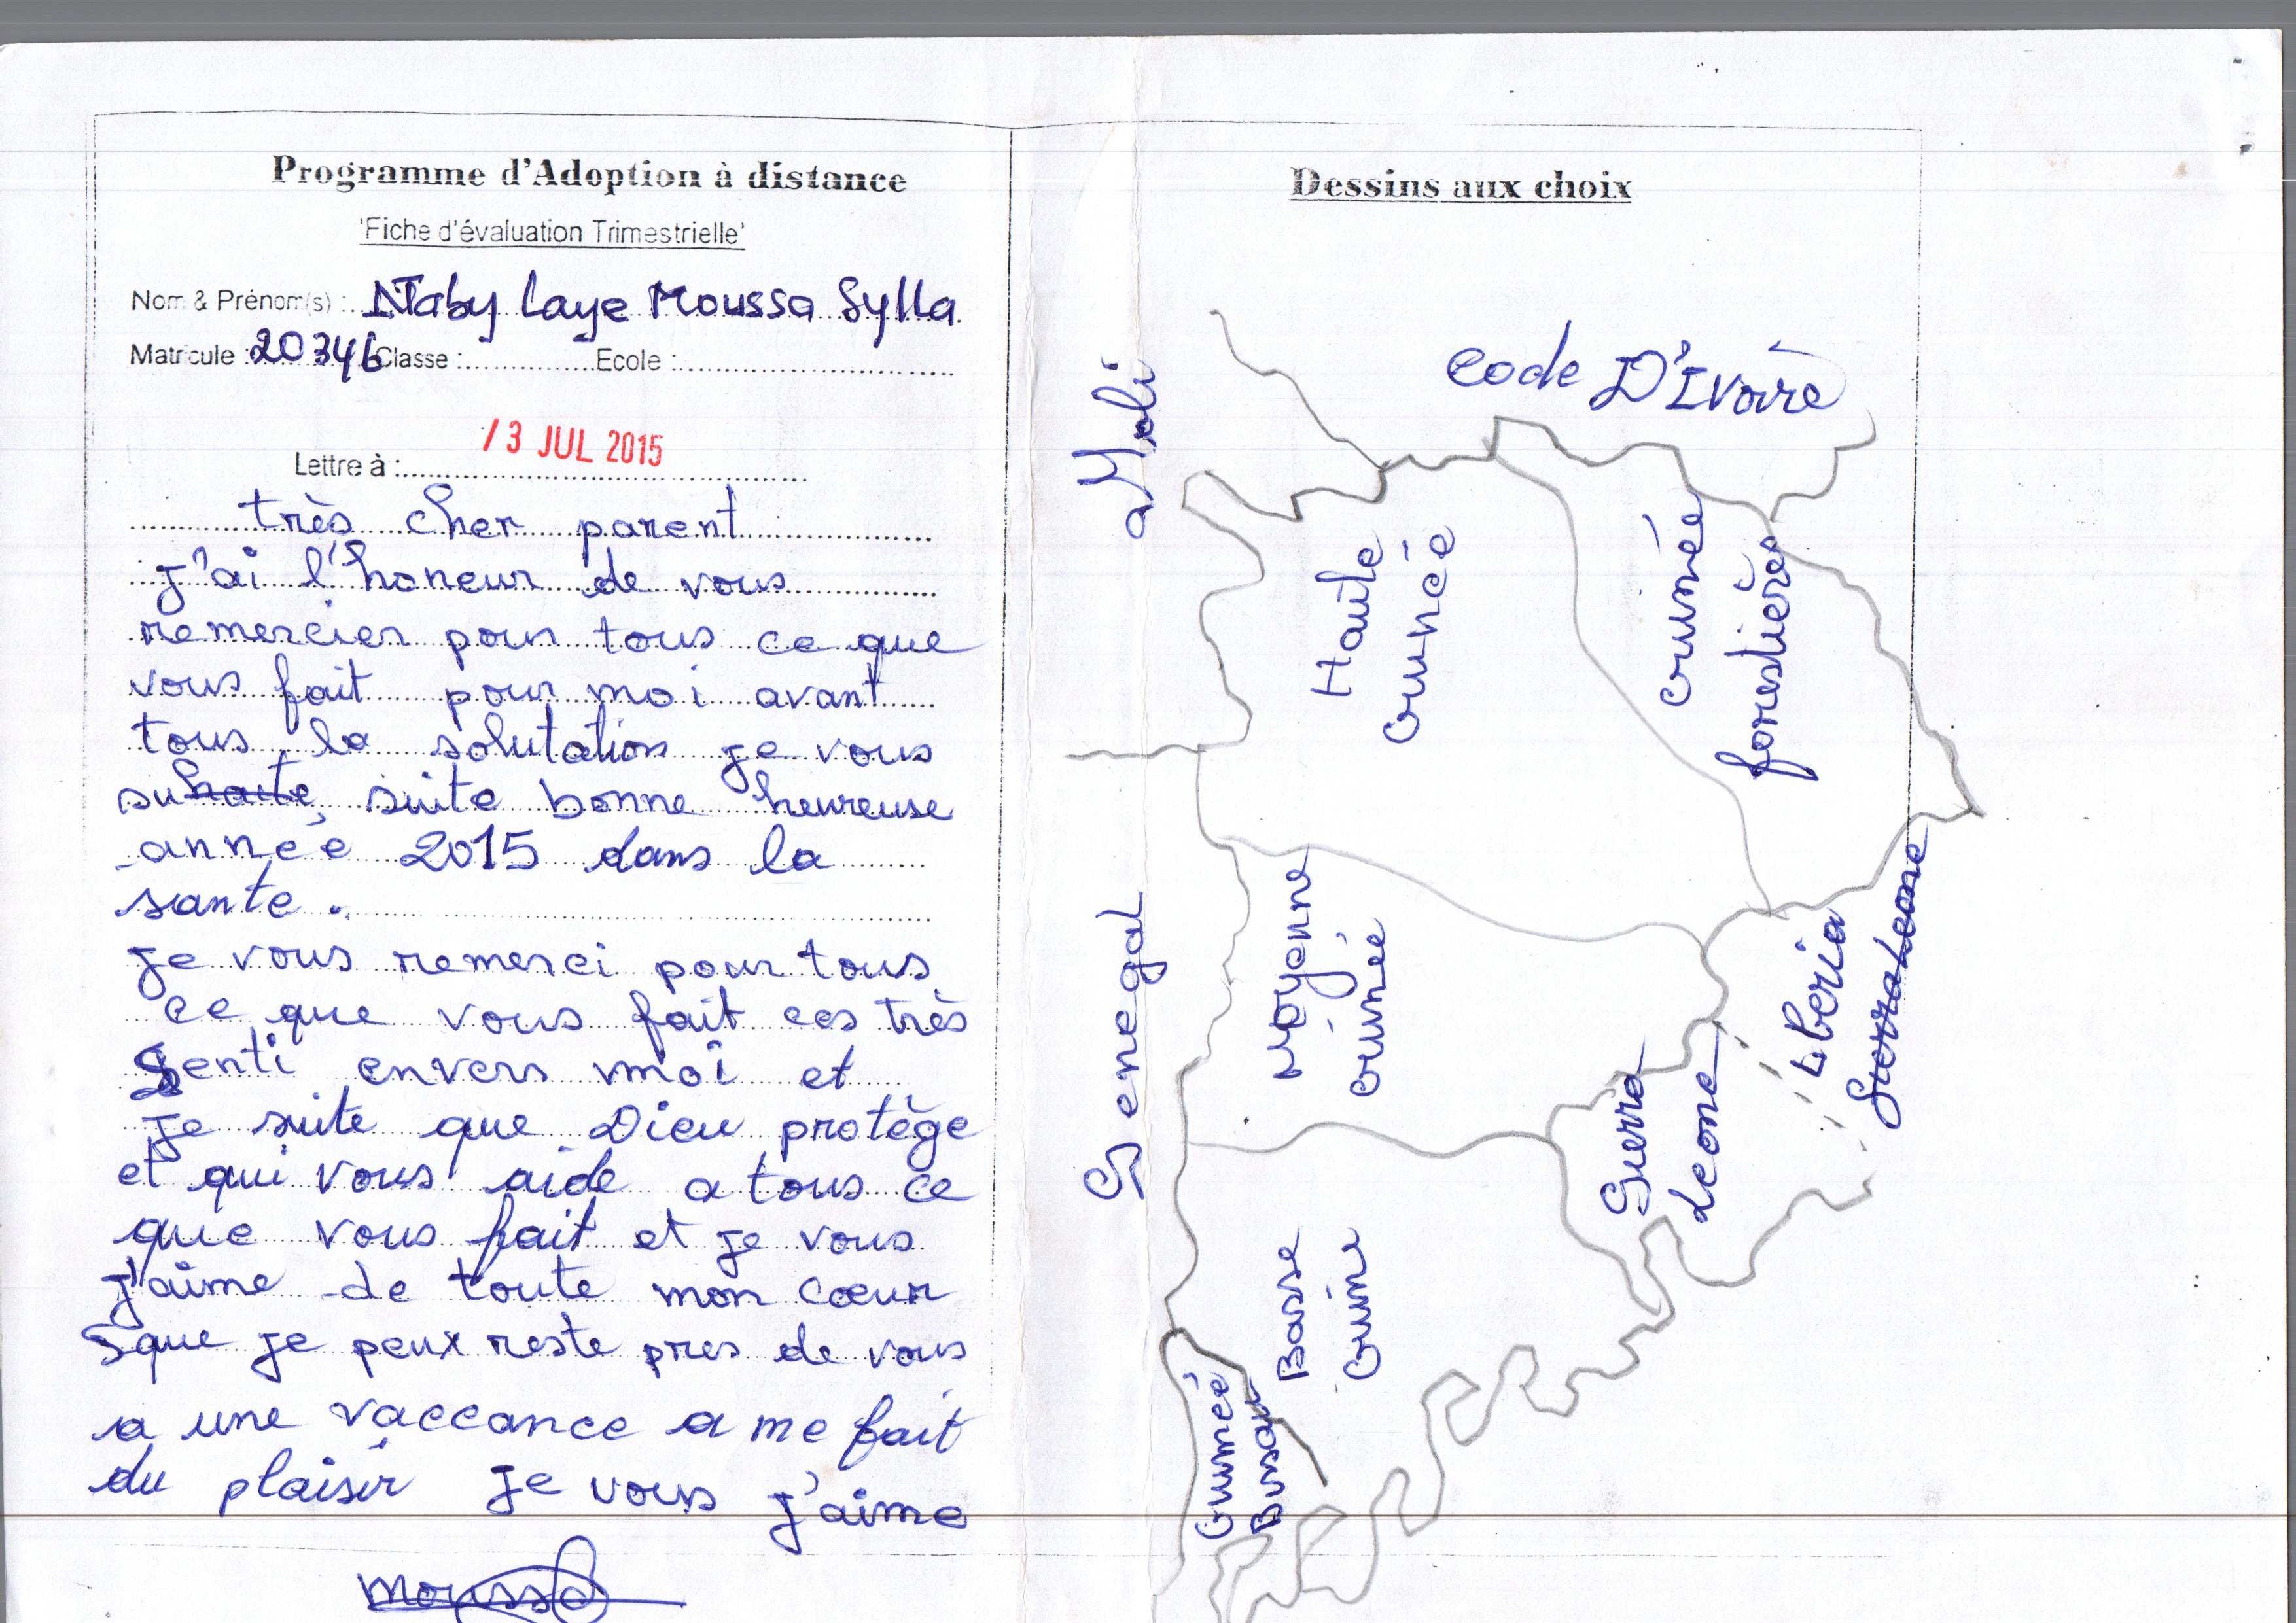 Programme d'Adoption à distance
'Fiche d'évaluation Trimestrielle'
Nom & Prénom(s) : N'Taby Laye Moussa Sylla
Matricule : 20346 Classe : Ecole :
13 JUL 2015
Lettre à :
très cher parent
j'ai l'honeur de vous
remercier pour tous ce que
vous fait pour moi avant
tous la solutation je vous
suhaite suite bonne heureuse
année 2015 dans la
sante.
je vous remerci pour tous
ce que vous fait ces très
genti envers moi et
je suite que Dieu protège
et qui vous aide a tous ce
que vous fait et je vous
j'aime de toute mon cœur
que je peux reste pres de vous
a une vaccance a me fait
du plaisir je vous j'aime
Moussa
Dessins aux choix
code D'Ivoire
Mali
Haute
Guineé
Guineé
forestière
Senegal
Moyenne
Guineé
Liberia
Sierra Leone
Sierra
Leone
Basse
Guine
Guineé
Bissau